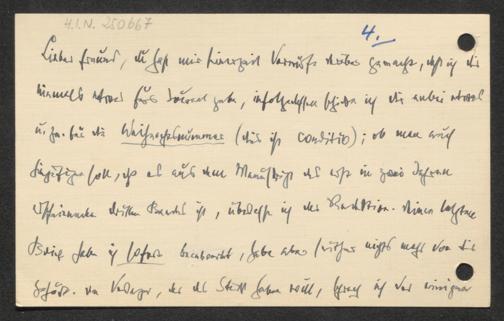 H.I.N. 250667
4.
Lieber Freund, du hast mir seinerzeit Vorwürfe darüber gemacht, daß ich dir
niemals etwas fürs Journal gebe, infolgedessen schicke ich dir anbei etwas
u. zw. für die Weihnachtsnummer (dies ist conditio); ob man auch
hinzufügen soll, daß es aus dem Manuskript des erst in zwei Jahren
erscheinenden dritten Bandes ist, überlasse ich der Redaktion. Deinen letzten
Brief habe ich sofort beantwortet, habe aber seither nichts mehr von dir
gehört. Der Verleger, der das Stück haben will, sprach ich vor einiger